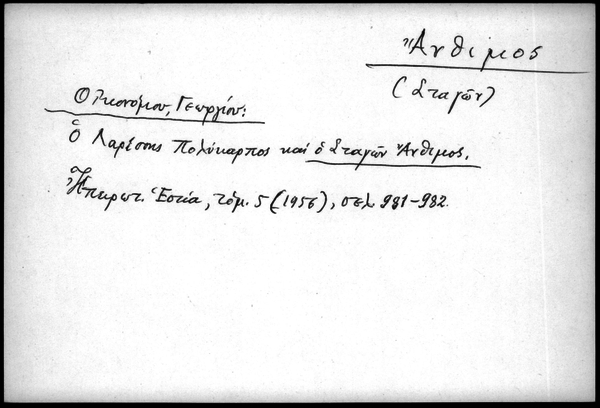 Ἄνθιμος
(Σταγῶν)
Οἰκονόμου, Γεωργίου:
Ὁ Λαρίσσης Πολύκαρπος καὶ ὁ Σταγῶν Ἄνθιμος.
Ἠπειρωτ. Ἑστία, τόμ. 5 (1956), σελ. 981-982.